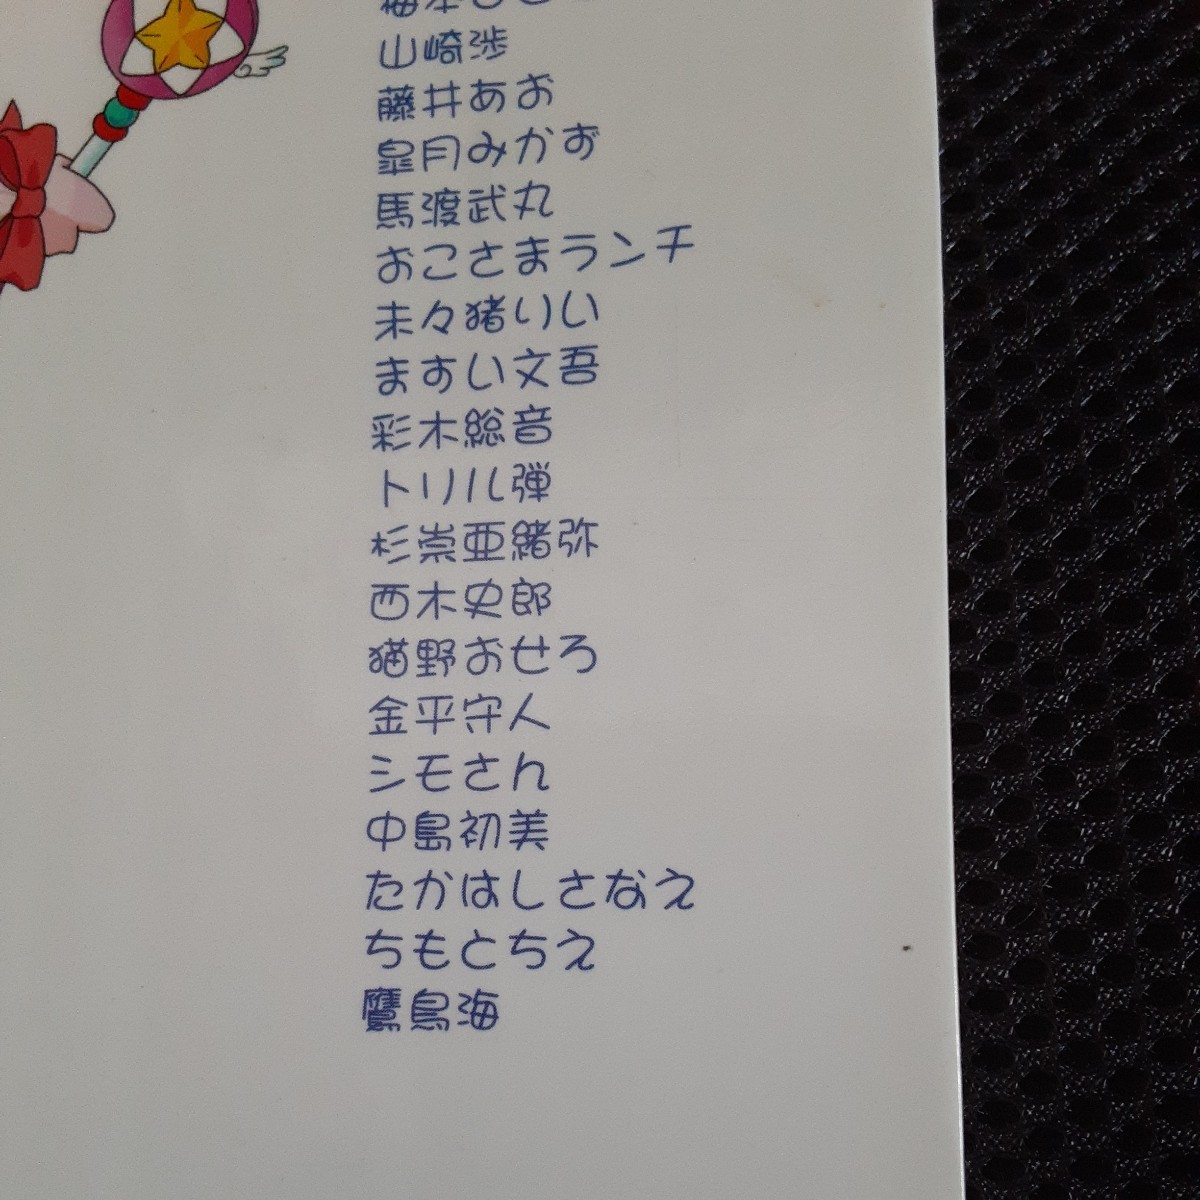 山崎渉
藤井あお
皐月みかず
馬渡武丸
おこさまランチ
未々猪りい
ますい文吾
彩木総音
トリル弾
杉崇亜緒弥
西木史郎
猫野おせろ
金平守人
シモさん
中島初美
たかはしさなえ
ちもとちえ
鷹鳥海